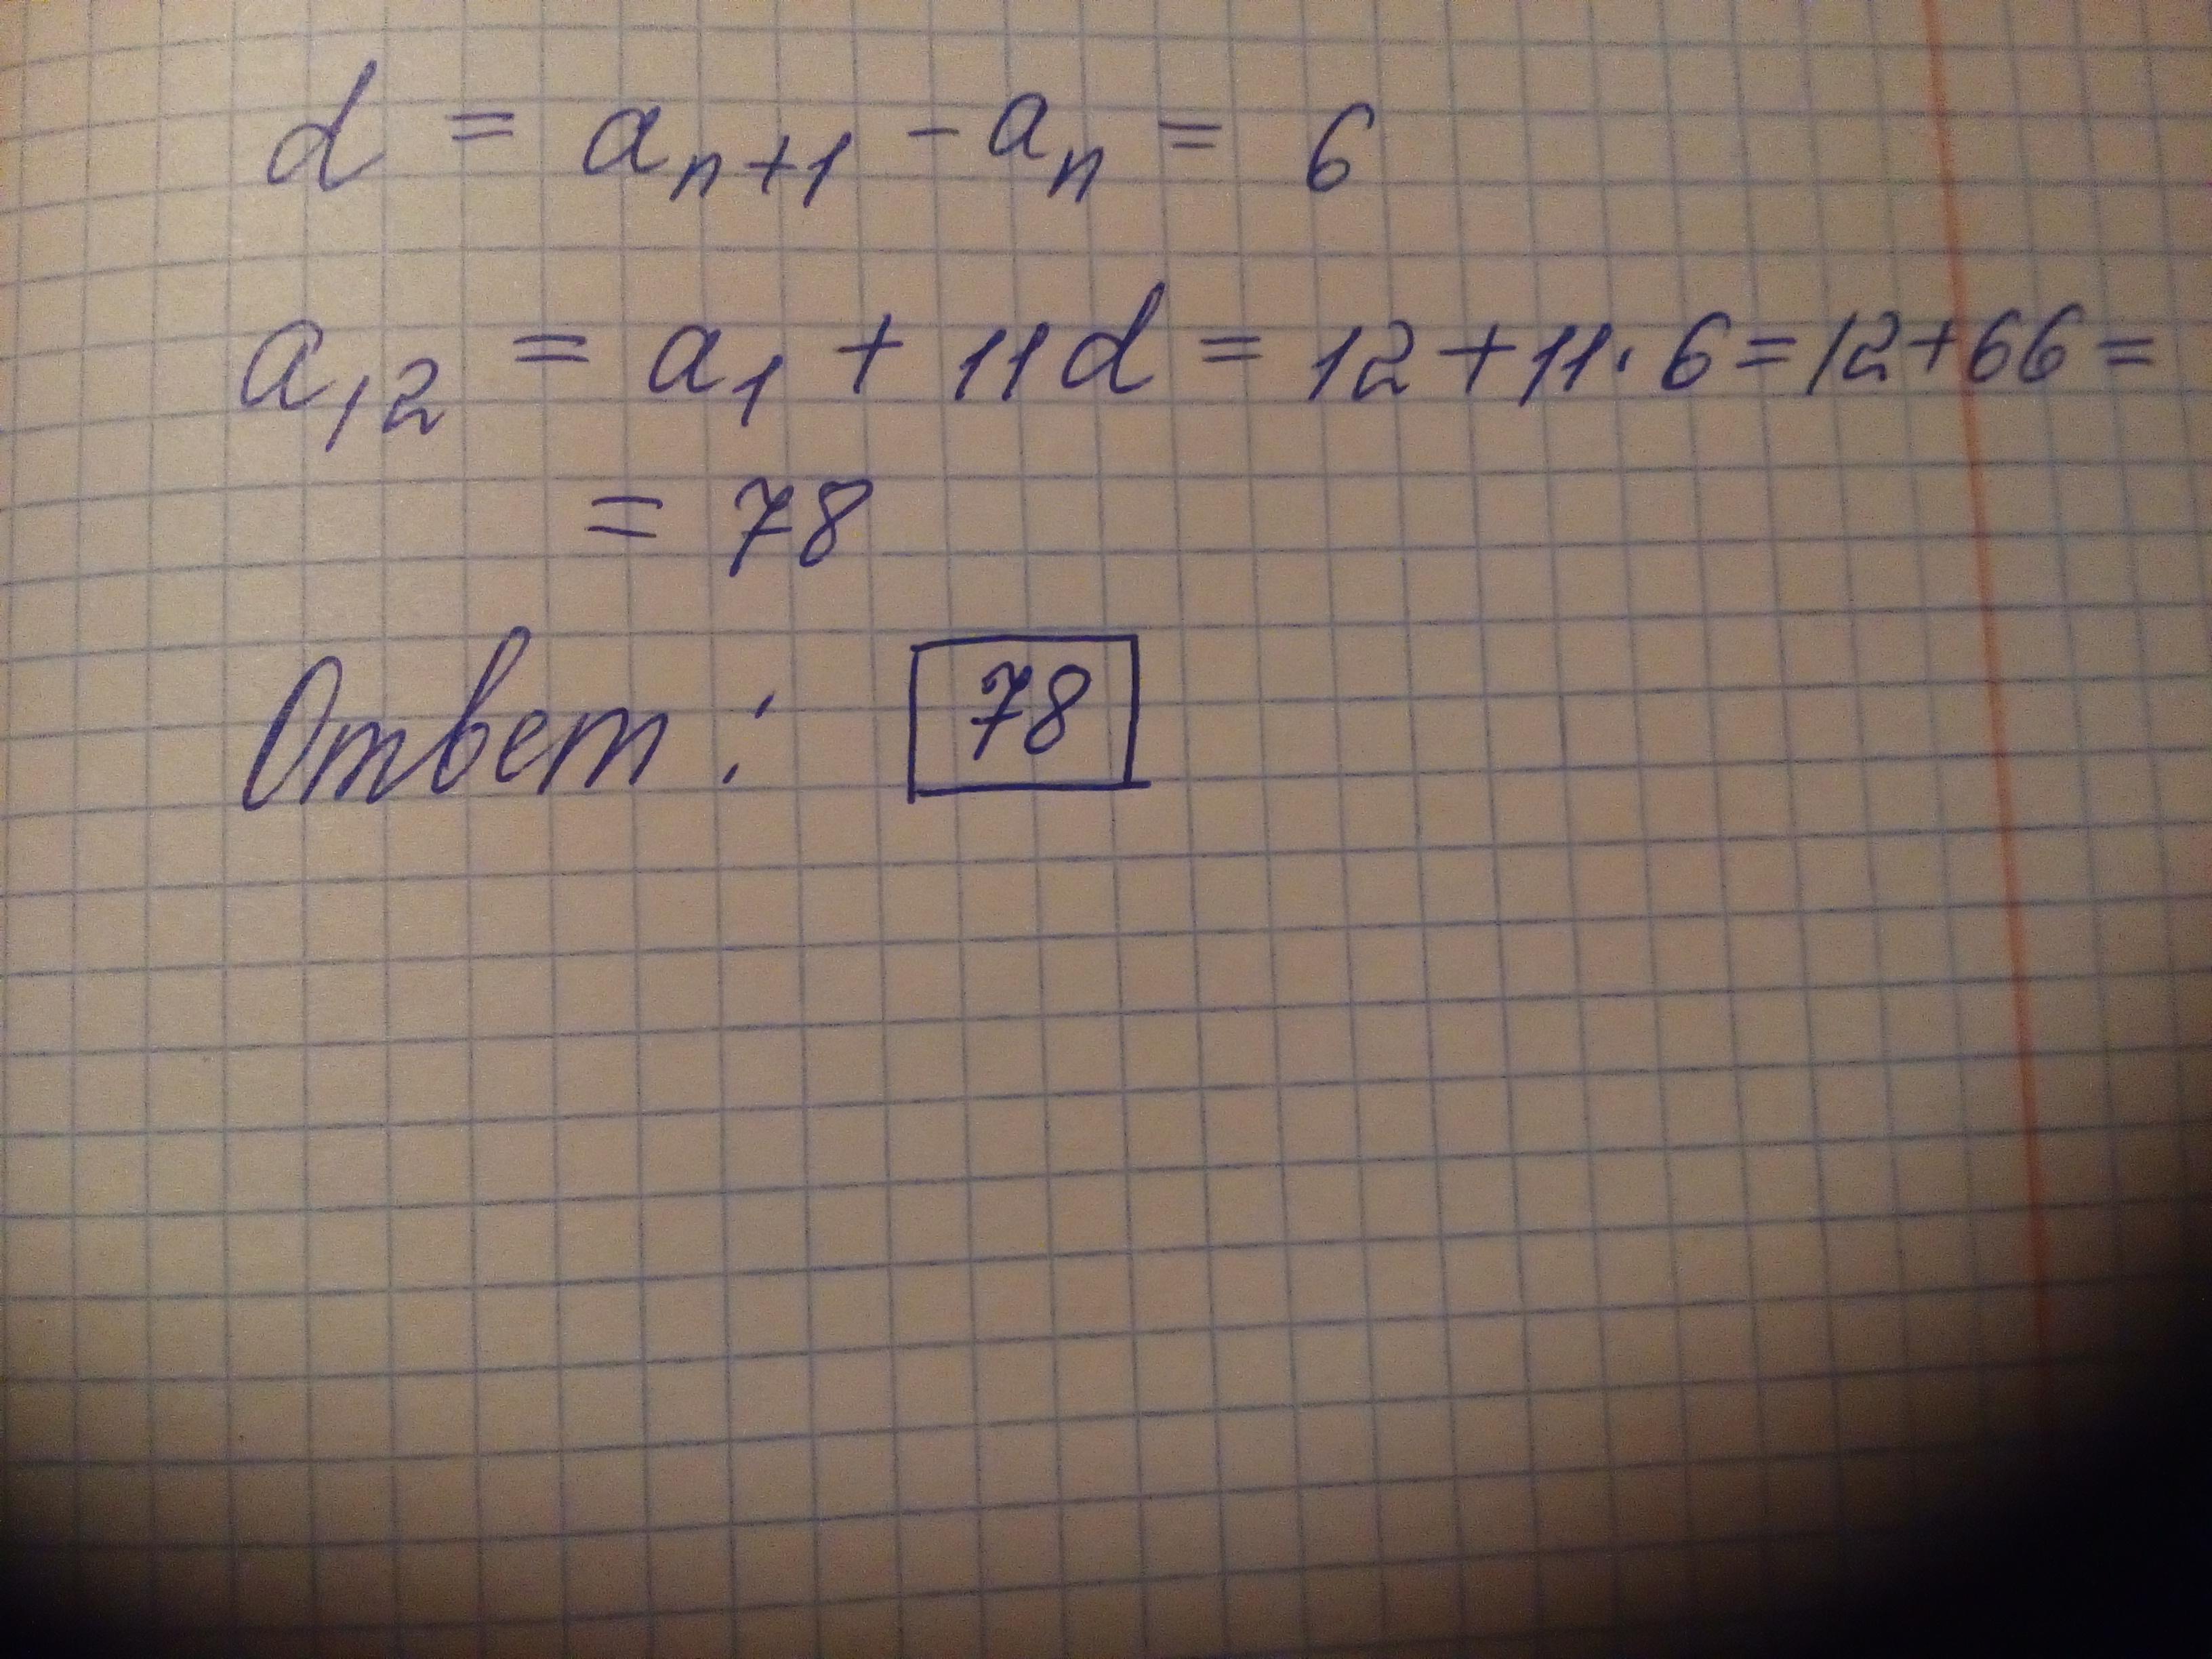 d = aₙ₊₁ - aₙ = 6
a₁₂ = a₁ + 11d = 12+11·6=12+66=
= 78
Ответ: 78